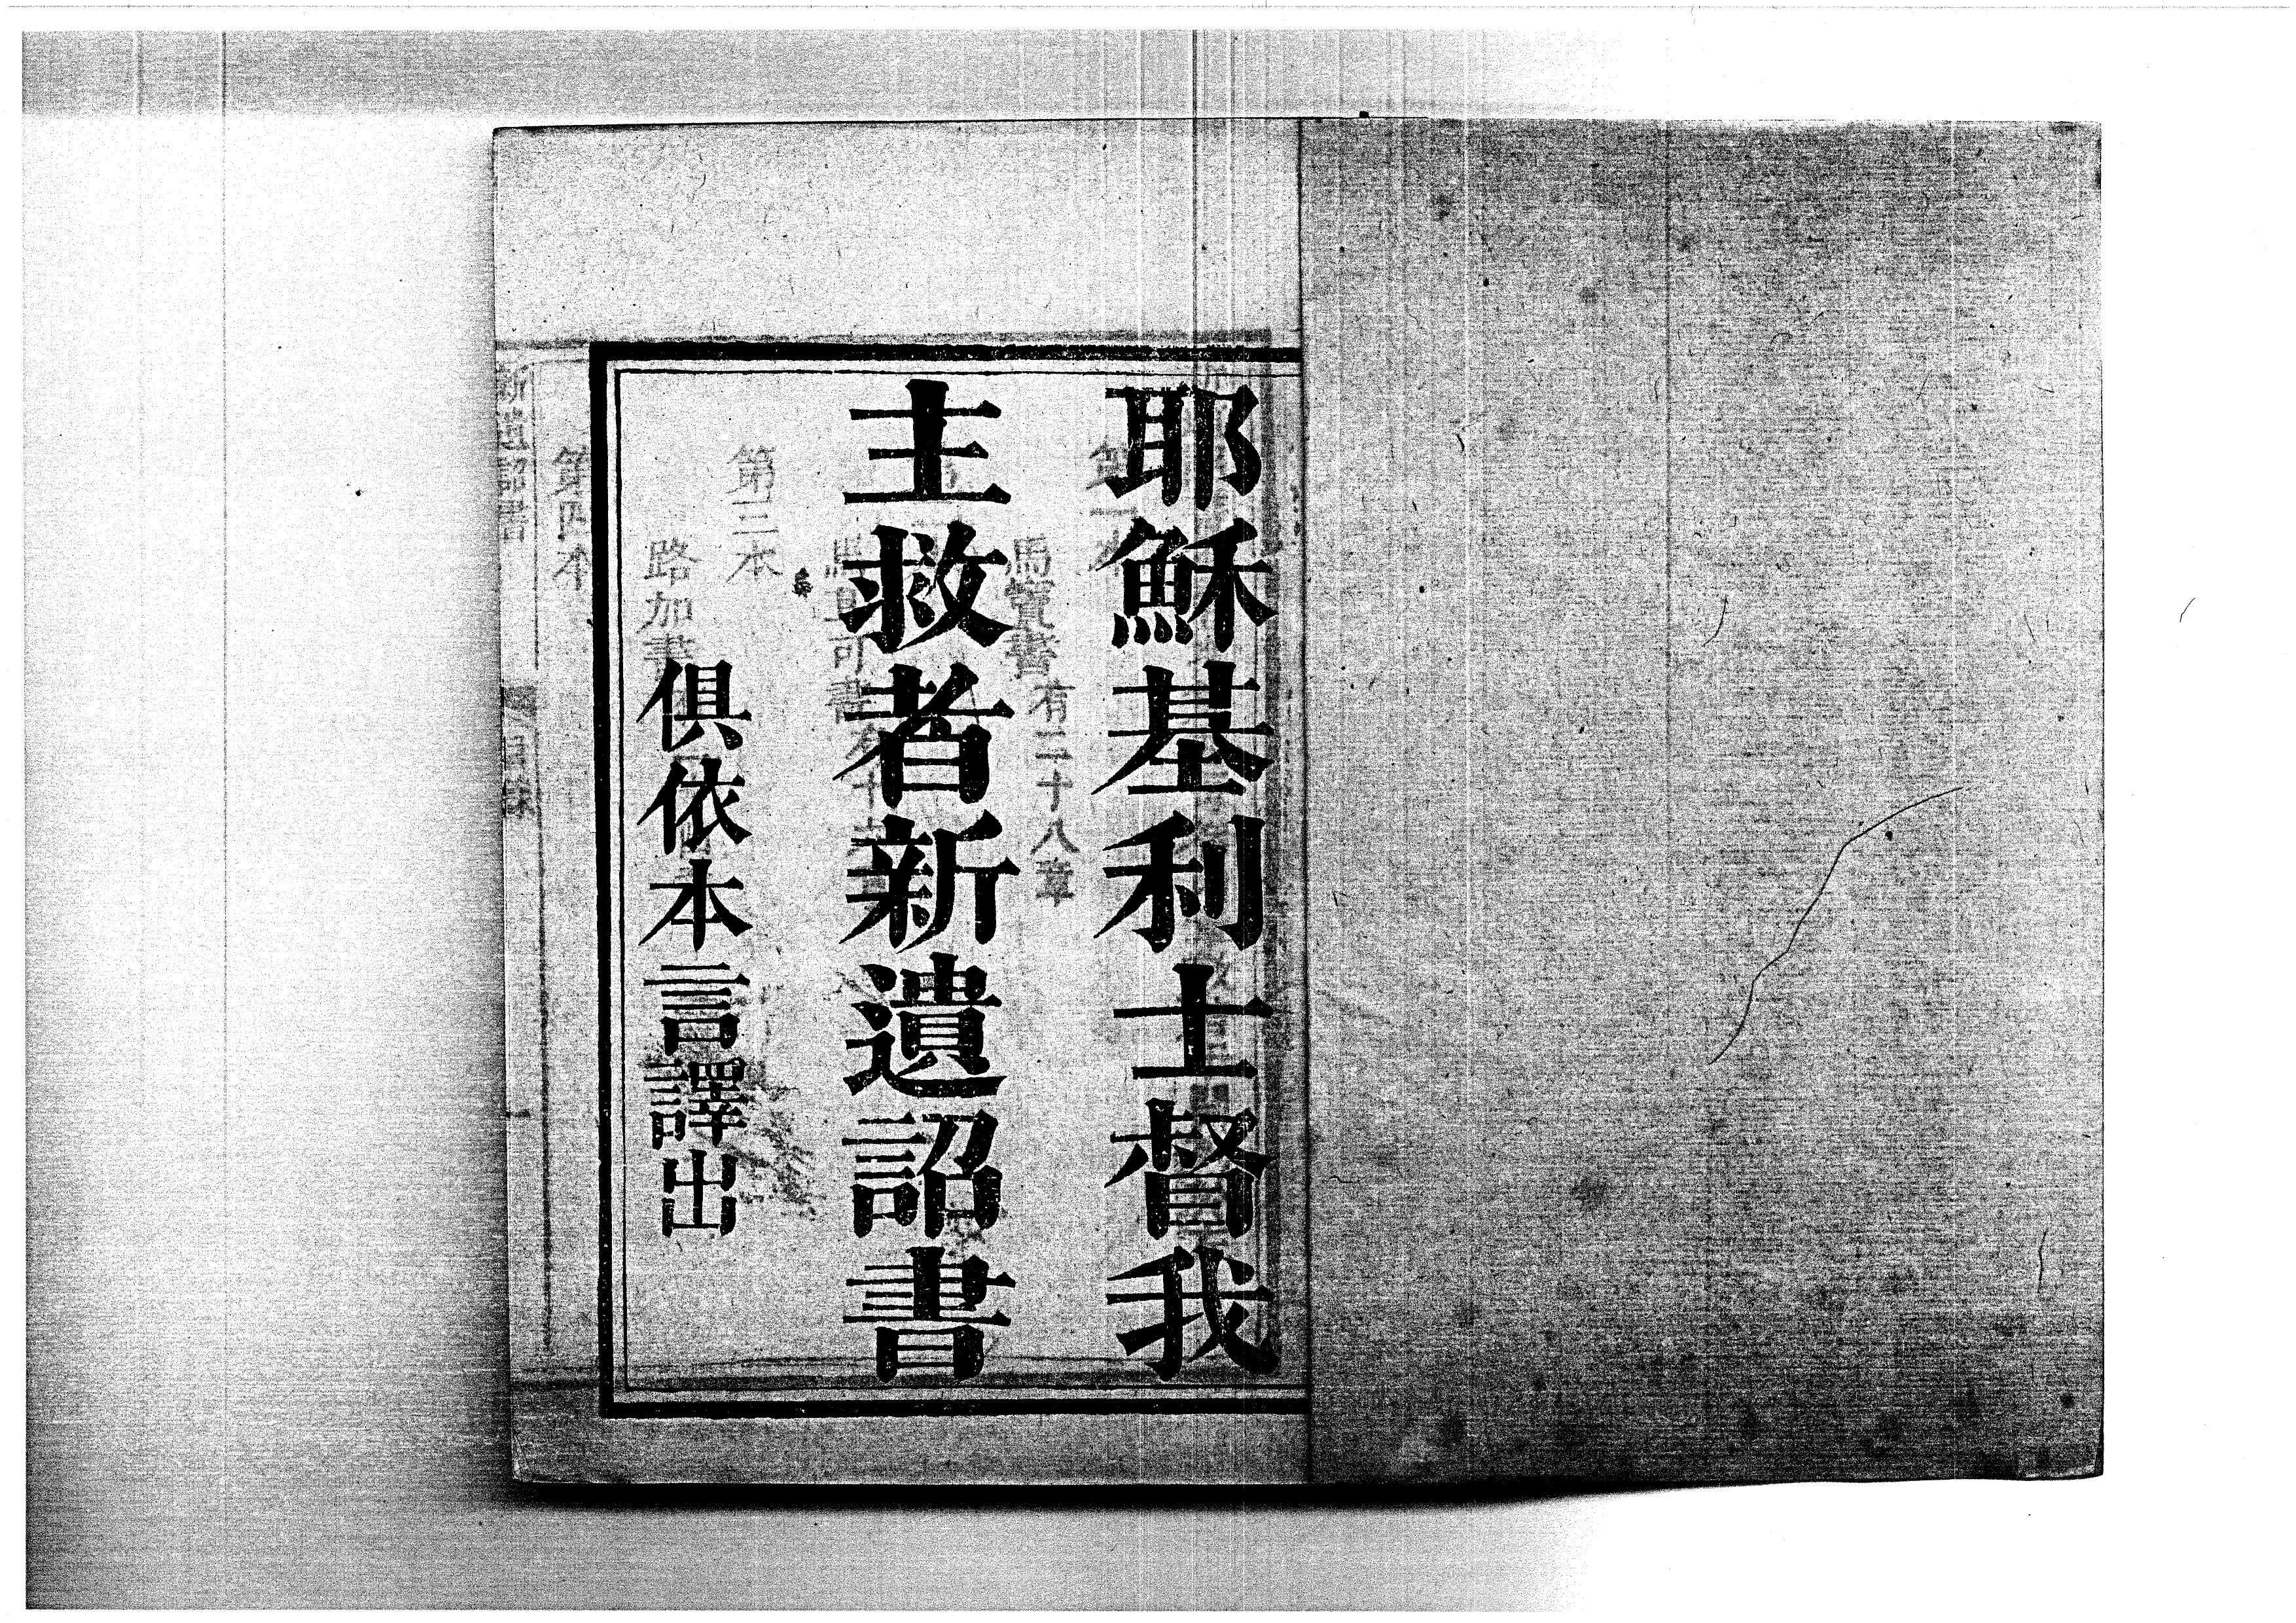 耶穌基利士督我
主救者新遺詔書
俱依本言譯出
馬竇書有二十八章
第三本
路加書
第四本
新遺詔書
目錄